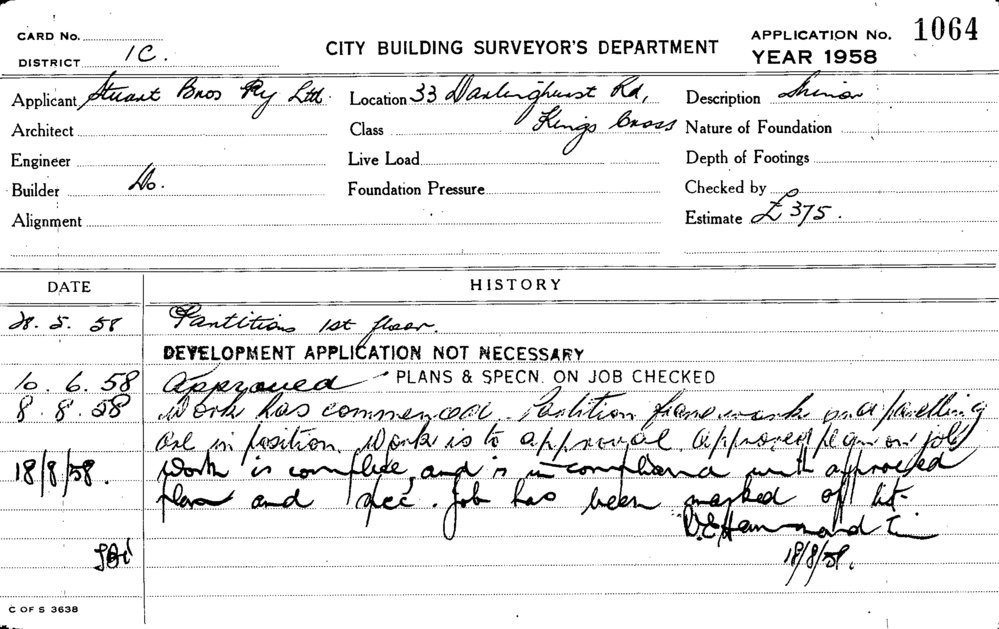 CARD No.
CITY BUILDING SURVEYOR'S DEPARTMENT
APPLICATION No. 1064
DISTRICT 1C.
YEAR 1958
Applicant Stuart Bros Pty Ltd. Location 33 Darlinghurst Rd, Description Minor
Architect Class Kings Cross Nature of Foundation
Engineer Live Load Depth of Footings
Builder Do. Foundation Pressure Checked by
Alignment Estimate £375.
DATE HISTORY
28. 5. 58 Partitions 1st floor.
DEVELOPMENT APPLICATION NOT NECESSARY
10. 6. 58 Approved PLANS & SPECN. ON JOB CHECKED
8. 8. 58 Work has commenced. Partition frame work and panelling
are in position. Work is to approval. Approved plan on job
18/8/58. Work is complete, and is in compliance with approved
plan and spec. Job has been marked off list
D.E. Hammond
18/8/58.
C OF S 3638